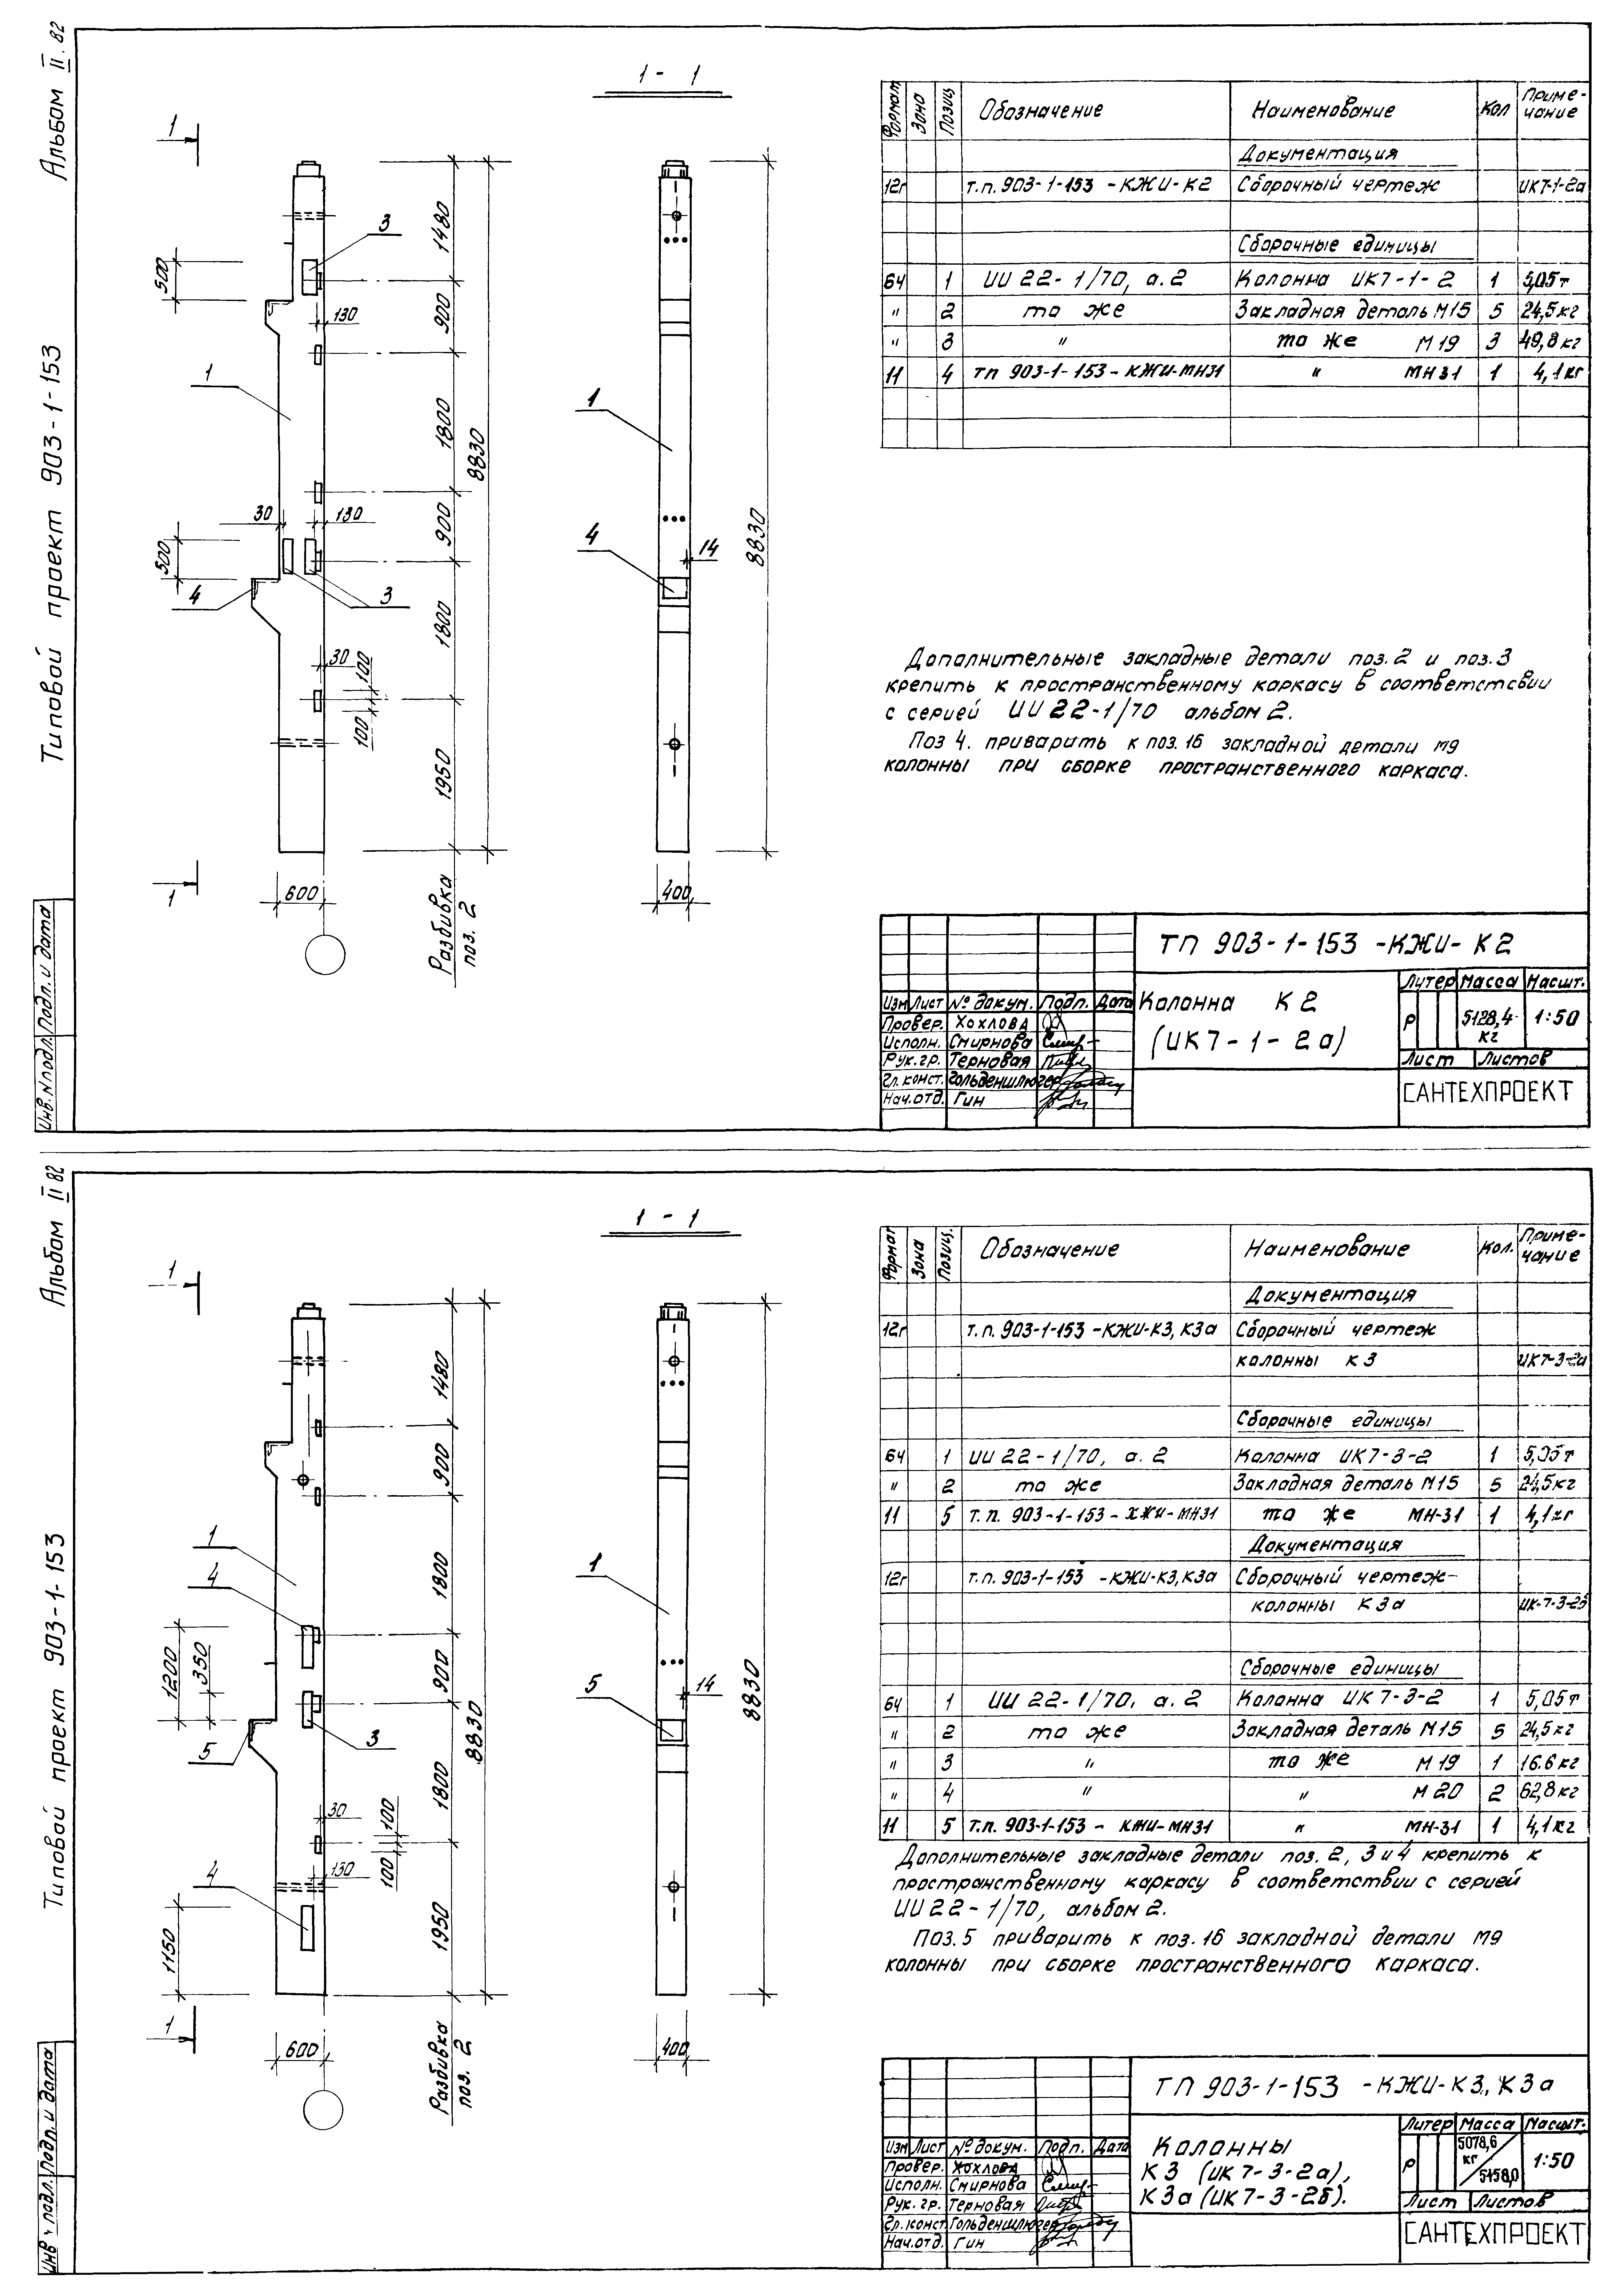 Альбом II. 82
Типовой проект 903-1-153
Инв.Nподл. Подп.и дата
1-1
1
3
1480
500
900
130
1
1
1800
8830
8830
30
130
900
500
4
14
4
3
1800
30
100
100
1950
1
600
400
Разбивка
поз. 2
Формат Зона Позиц Обозначение Наименование Кол Приме-
чание
Документация
12г т.п. 903-1-153 -КЖИ-К2 Сборочный чертеж ИК7-1-2а
Сборочные единицы
64 1 ИИ 22-1/70, а.2 Колонна ИК7-1-2 1 5,05т
" 2 то же Закладная деталь М15 5 24,5кг
" 3 " то же М19 3 49,8кг
11 4 тп 903-1-153-КЖИ-МН31 " МН31 1 4,1кг
Дополнительные закладные детали поз.2 и поз.3
крепить к пространственному каркасу в соответствии
с серией ИИ22-1/70 альбом 2.
Поз 4. приварить к поз.16 закладной детали М9
колонны при сборке пространственного каркаса.
ТП 903-1-153 -КЖИ- К2
Колонна К2
(ИК7-1-2а)
Литер Масса Масшт.
Р 5128,4 кг 1:50
Лист Листов
САНТЕХПРОЕКТ
Изм Лист № докум. Подп. Дата
Провер. Хохлова
Исполн. Смирнова
Рук.гр. Терновая
Гл.конст. Гольденшлюгер
Нач.отд. Гин
Альбом II 82
Типовой проект 903-1-153
Инв. подл. Подп. и дата
1-1
1
1480
900
1
4
1800
1
1200
350
900
8830
8830
5
14
5
3
1800
30
100
100
4
130
1150
1950
1
600
400
Разбивка
поз. 2
Формат Зона Позиц. Обозначение Наименование Кол. Приме-
чание
Документация
12г т.п. 903-1-153 -КЖИ-К3, К3а Сборочный чертеж
колонны К3 ИК7-3-2а
Сборочные единицы
64 1 ИИ 22-1/70, а.2 Колонна ИК7-3-2 1 5,05т
" 2 то же Закладная деталь М15 5 24,5кг
11 5 т.п. 903-1-153-КЖИ-МН31 то же МН-31 1 4,1кг
Документация
12г т.п. 903-1-153 -КЖИ-К3, К3а Сборочный чертеж
колонны К3а ИК-7-3-2б
Сборочные единицы
64 1 ИИ 22-1/70, а.2 Колонна ИК7-3-2 1 5,05т
" 2 то же Закладная деталь М15 5 24,5кг
" 3 " то же М19 1 16.6кг
" 4 " " М20 2 62,8кг
11 5 т.п. 903-1-153- КЖИ-МН31 " МН-31 1 4,1кг
Дополнительные закладные детали поз. 2, 3 и 4 крепить к
пространственному каркасу в соответствии с серией
ИИ22-1/70, альбом 2.
Поз.5 приварить к поз.16 закладной детали М9
колонны при сборке пространственного каркаса.
ТП 903-1-153 -КЖИ-К3, К3а
Колонны
К3 (ИК7-3-2а),
К3а (ИК7-3-2б).
Литер Масса Масшт.
Р 5078,6 кг 5158,0 1:50
Лист Листов
САНТЕХПРОЕКТ
Изм Лист № докум. Подп. Дата
Провер. Хохлова
Исполн. Смирнова
Рук.гр. Терновая
Гл.конст Гольденшлюгер
Нач.отд. Гин